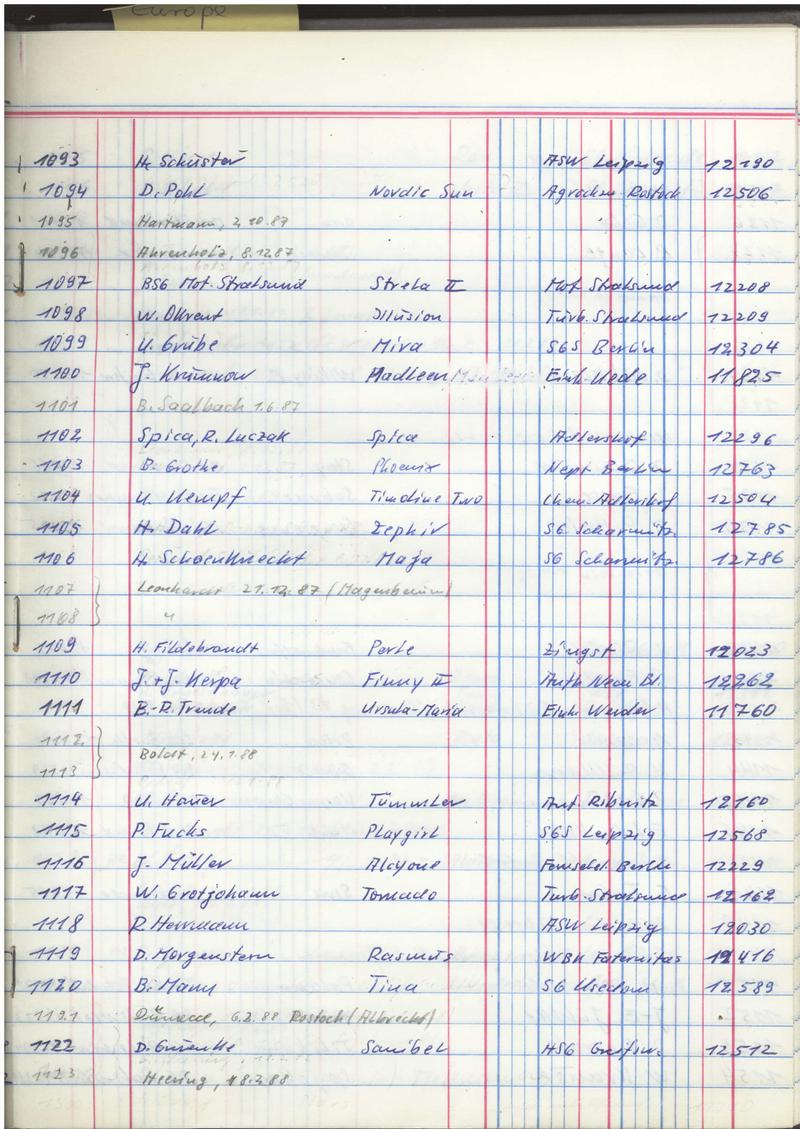 Europe
1093 H. Schuster ASW Leipzig 12190
1094 D. Pohl Nordic Sun Agrochem. Rostock 12506
1095 Hartmann, 2.10.87
1096 Ahrenholz, 8.12.87
1097 BSG Mot. Stralsund Strela II Mot Stralsund 12208
1098 W. Ohrent Illusion Turb. Stralsund 12209
1099 U. Grube Mira SGS Berlin 12304
1100 J. Krumnow Madleen Einh. Uede 11825
1101 B. Saalbach 1.6.87
1102 Spica, R. Luczak Spica Adlershof 12296
1103 B. Grothe Phoenix Nept Berlin 12763
1104 U. Kempf Timdine Two Chem. Adlershof 12504
1105 H. Dahl Zephir SG Scharmütz. 12785
1106 H. Schoenknecht Maja SG Scharmütz. 12786
1107 Leonhardt 21.12.87
1108 "
1109 H. Fildebrandt Perle Zingst 12023
1110 J. + J. Kerpa Finny II 12262
1111 B.-R. Trende Ursula-Maria Einh. Werder 11760
1112
Boldt, 24.1.88
1113
1114 U. Hauer Tümmler Auf. Ribnitz 12160
1115 P. Fuchs Playgirl SGS Leipzig 12568
1116 J. Müller Alcyone Fernsehel. Berlin 12229
1117 W. Grotjohann Tornado Turb. Stralsund 12162
1118 R. Herrmann ASW Leipzig 12030
1119 D. Morgenstern Rasmus WBK 12416
1120 B. Mann Tina SG Usedom 12589
1121 6.2.88 Rostock (Albrecht)
1122 D. Sanibel HSG Greifsw. 12512
1123 Heering, 18.2.88